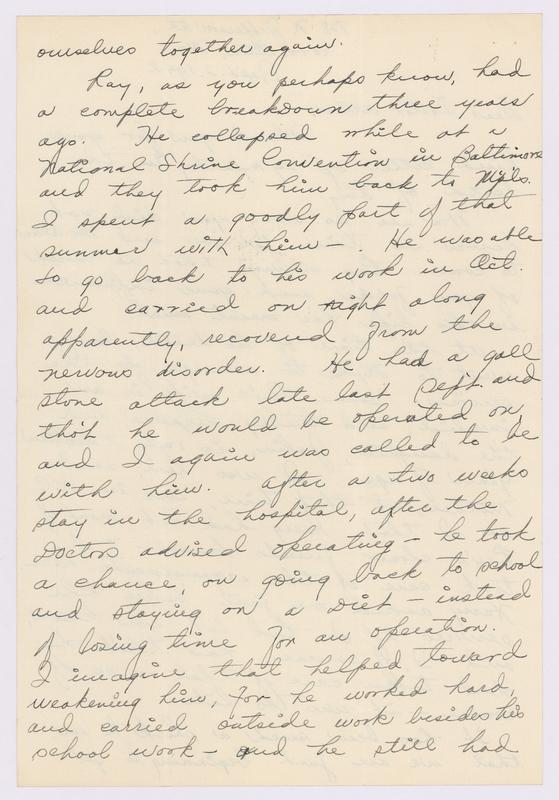 ourselves together again.
Ray, as you perhaps know, had
a complete breakdown three years
ago. He collapsed while at a
National Shrine Convention in Baltimore
and they took him back to Mpls.
I spent a goodly part of that
summer with him — . He was able
to go back to his work in Oct.
and carried on right along
apparently, recovered from the
nervous disorder. He had a gall
stone attack late last Sept. and
tho't he would be operated on,
and I again was called to be
with him. After a two weeks
stay in the hospital, after the
Doctors advised operating – he took
a chance, on going back to school
and staying on a Diet – instead
of losing time for an operation.
I imagine that helped toward
weakening him, for he worked hard,
and carried outside work besides his
school work – and he still had